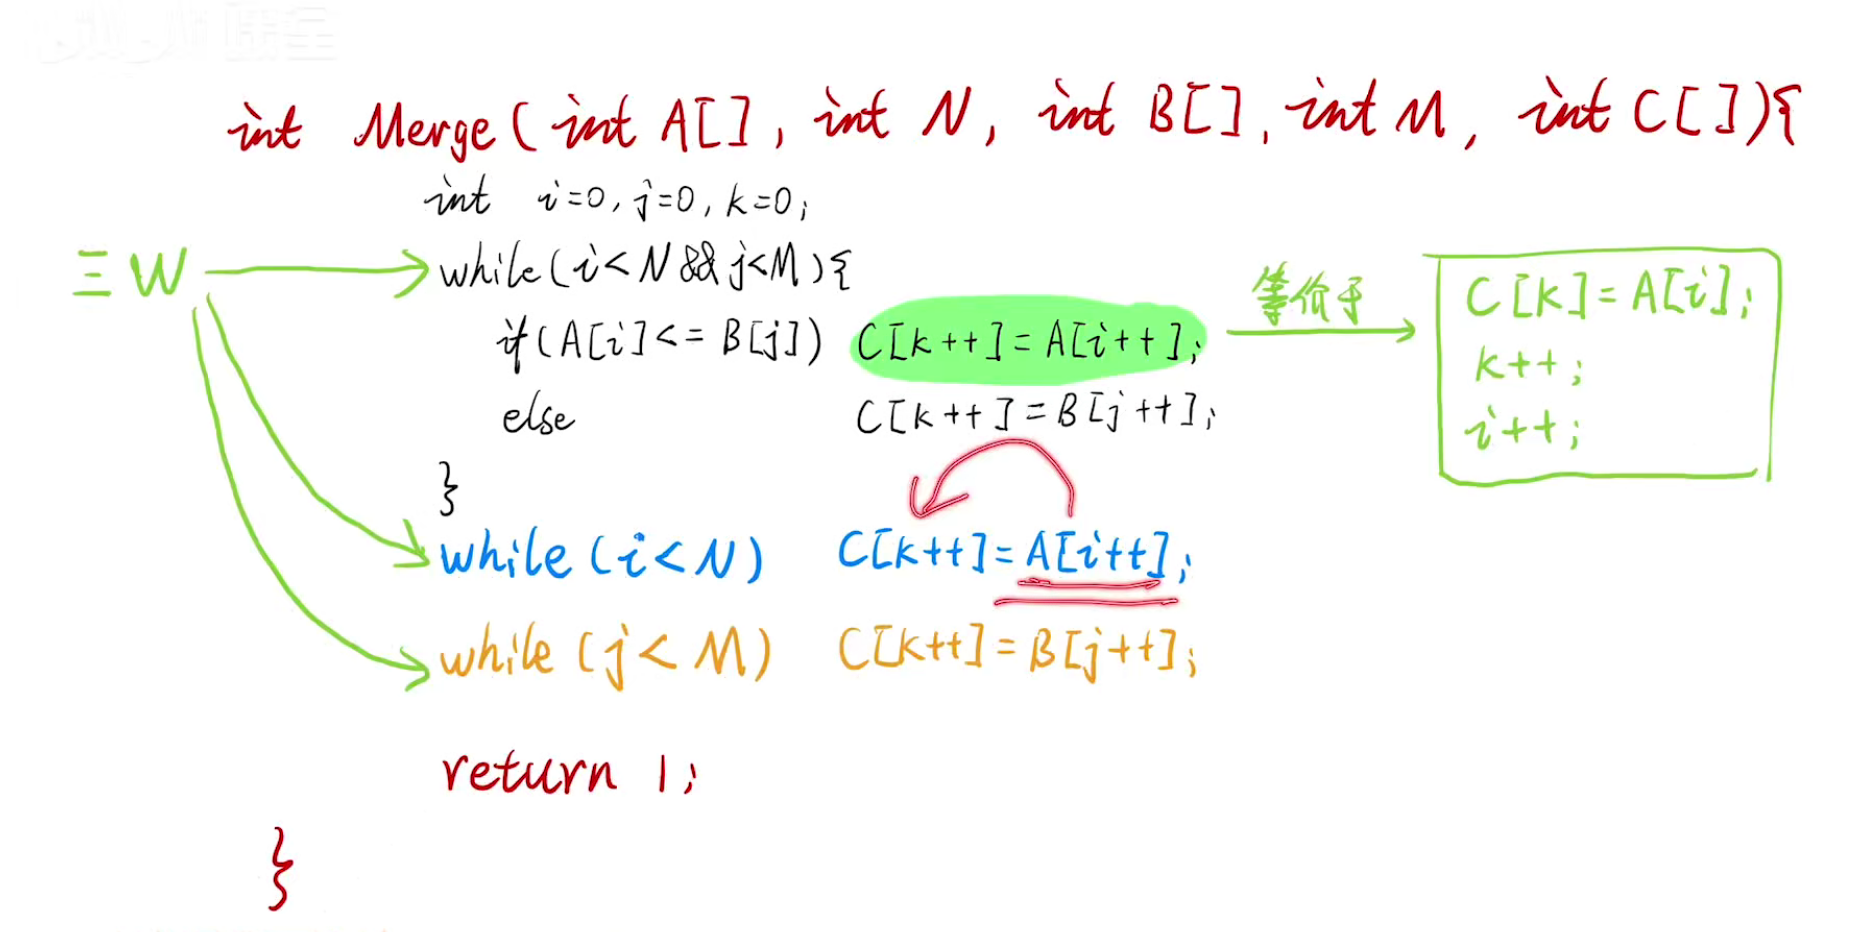 int Merge(int A[], int N, int B[], int M, int C[]){
int i=0, j=0, k=0;
三W
while(i<N && j<M){
if(A[i]<=B[j]) C[k++]=A[i++];
等价于
C[k]=A[i];
k++;
i++;
else C[k++]=B[j++];
}
while(i<N) C[k++]=A[i++];
while(j<M) C[k++]=B[j++];
return 1;
}